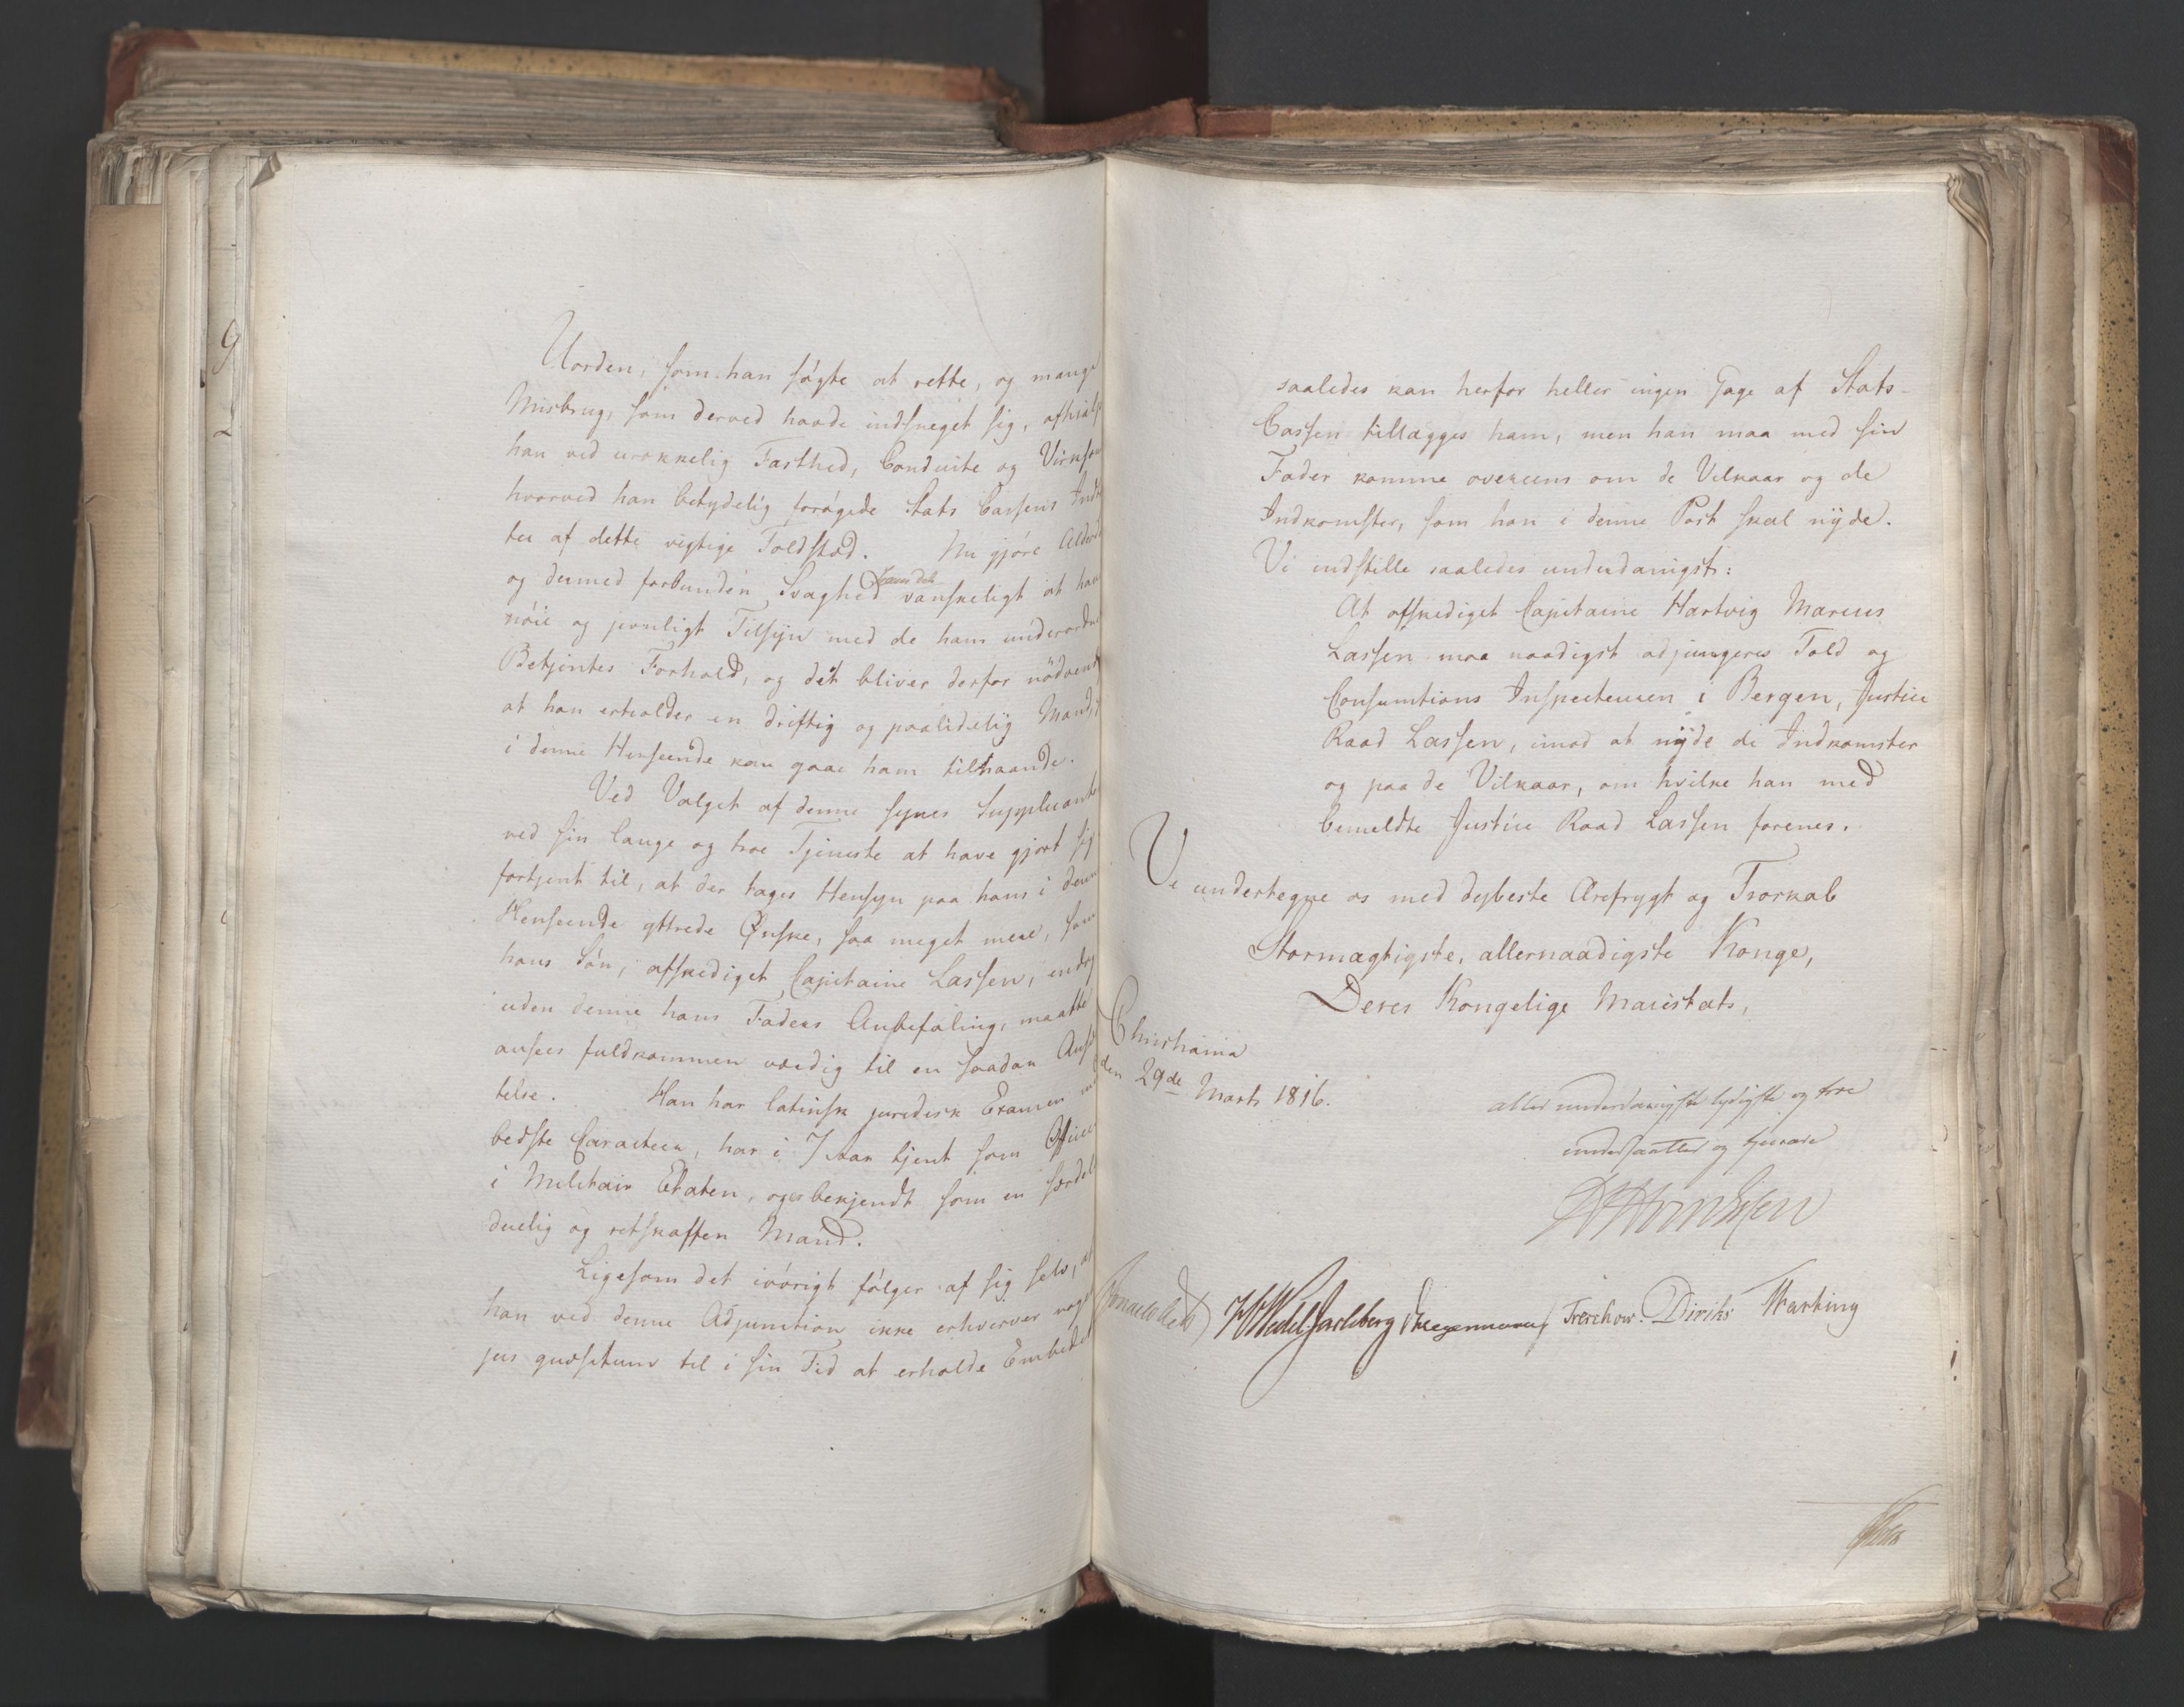 Uorden, som han søgte at rette, og mange
Misbrug, som derved havde indsneget sig, afhialp
han ved urokkelig Fasthed, Conduite og Virksom
hvorved han betydelig forøgede Stats Cassens Indk
ter af dette vigtige Toldsted. Nu gjøre Alderd
og dermed forbunden Svaghed vanskeligt at hav
nøie og jevnligt Tilsyn med de ham underordn
Betjentes Forhold, og det bliver derfor nödvend
at han erholder en driftig og paalidelig Mand,
i denne Henseende kan gaae ham tilhaande.
Ved Valget af denne synes Supplicante
ved sin lange og troe Tjeneste at have gjort sig
fortjent til, at der tages Hensyn paa hans i denn
Henseende yttrede Ønske, saa meget mere, som
hans Sön, afskediget Capitaine Lassen, endog
uden denne hans Faders Anbefaling, maatte
ansees fuldkommen værdig til en saadan Anst
telse. Han har latinsk juridisk Examen med
bedste Caracteer, har i 7 Aar tjent som Officeer
i Militair Etaten, og er bekjendt som en særdel
duelig og retskaffen Mand.
Ligesom det iövrigt fölger af sig selv, at
han ved denne Adjunction ikke erhverver noget
jus quæsitum til i sin Tid at erholde Embedet
saaledes kan herfor heller ingen Gage af Stats-
Cassen tillægges ham, men han maa med sin
Fader komme overeens om de Vilkaar og de
Indkomster, som han i denne Post skal nÿde.
Vi indstille saaledes underdanigst:
At afskediget Capitaine Hartvig Marcus
Lassen maa naadigst adjungeres Told og
Consumtions Inspecteuren i Bergen, Justice
Raad Lassen, imod at nÿde de Indkomster
og paa de Vilkaar, om hvilke han med
bemeldte Justice Raad Lassen forenes.
Vi undertegne os med dybeste Ærefrygt og Troskab
Stormægtigste, allernaadigste Konge,
Deres Kongelige Maiestæts,
Christiania
den 29de Marts 1816.
allerunderdanigste lydigste og troe
undersaatter og tjenere
Sommerfeldt HWedel Jarlsberg Krogemann Treschow. Diriks Thesting